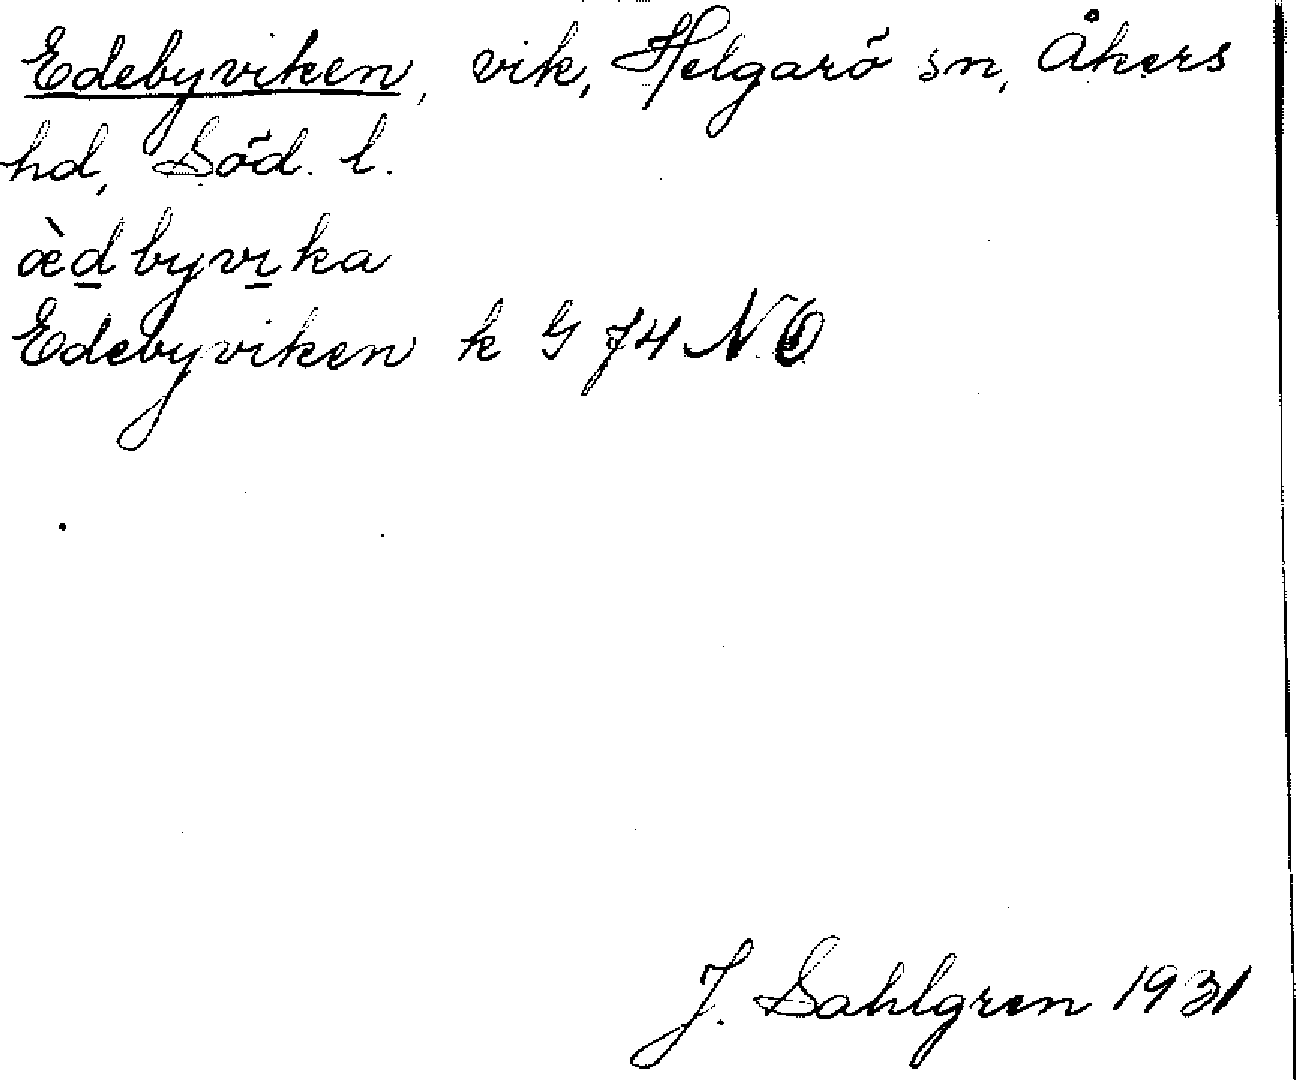 Edebyviken, vik, Helgarö sn, Åkers
hd, Söd. l.
æ̀dbyvika
Edebyviken k G 74 NO
J. Sahlgren 1931